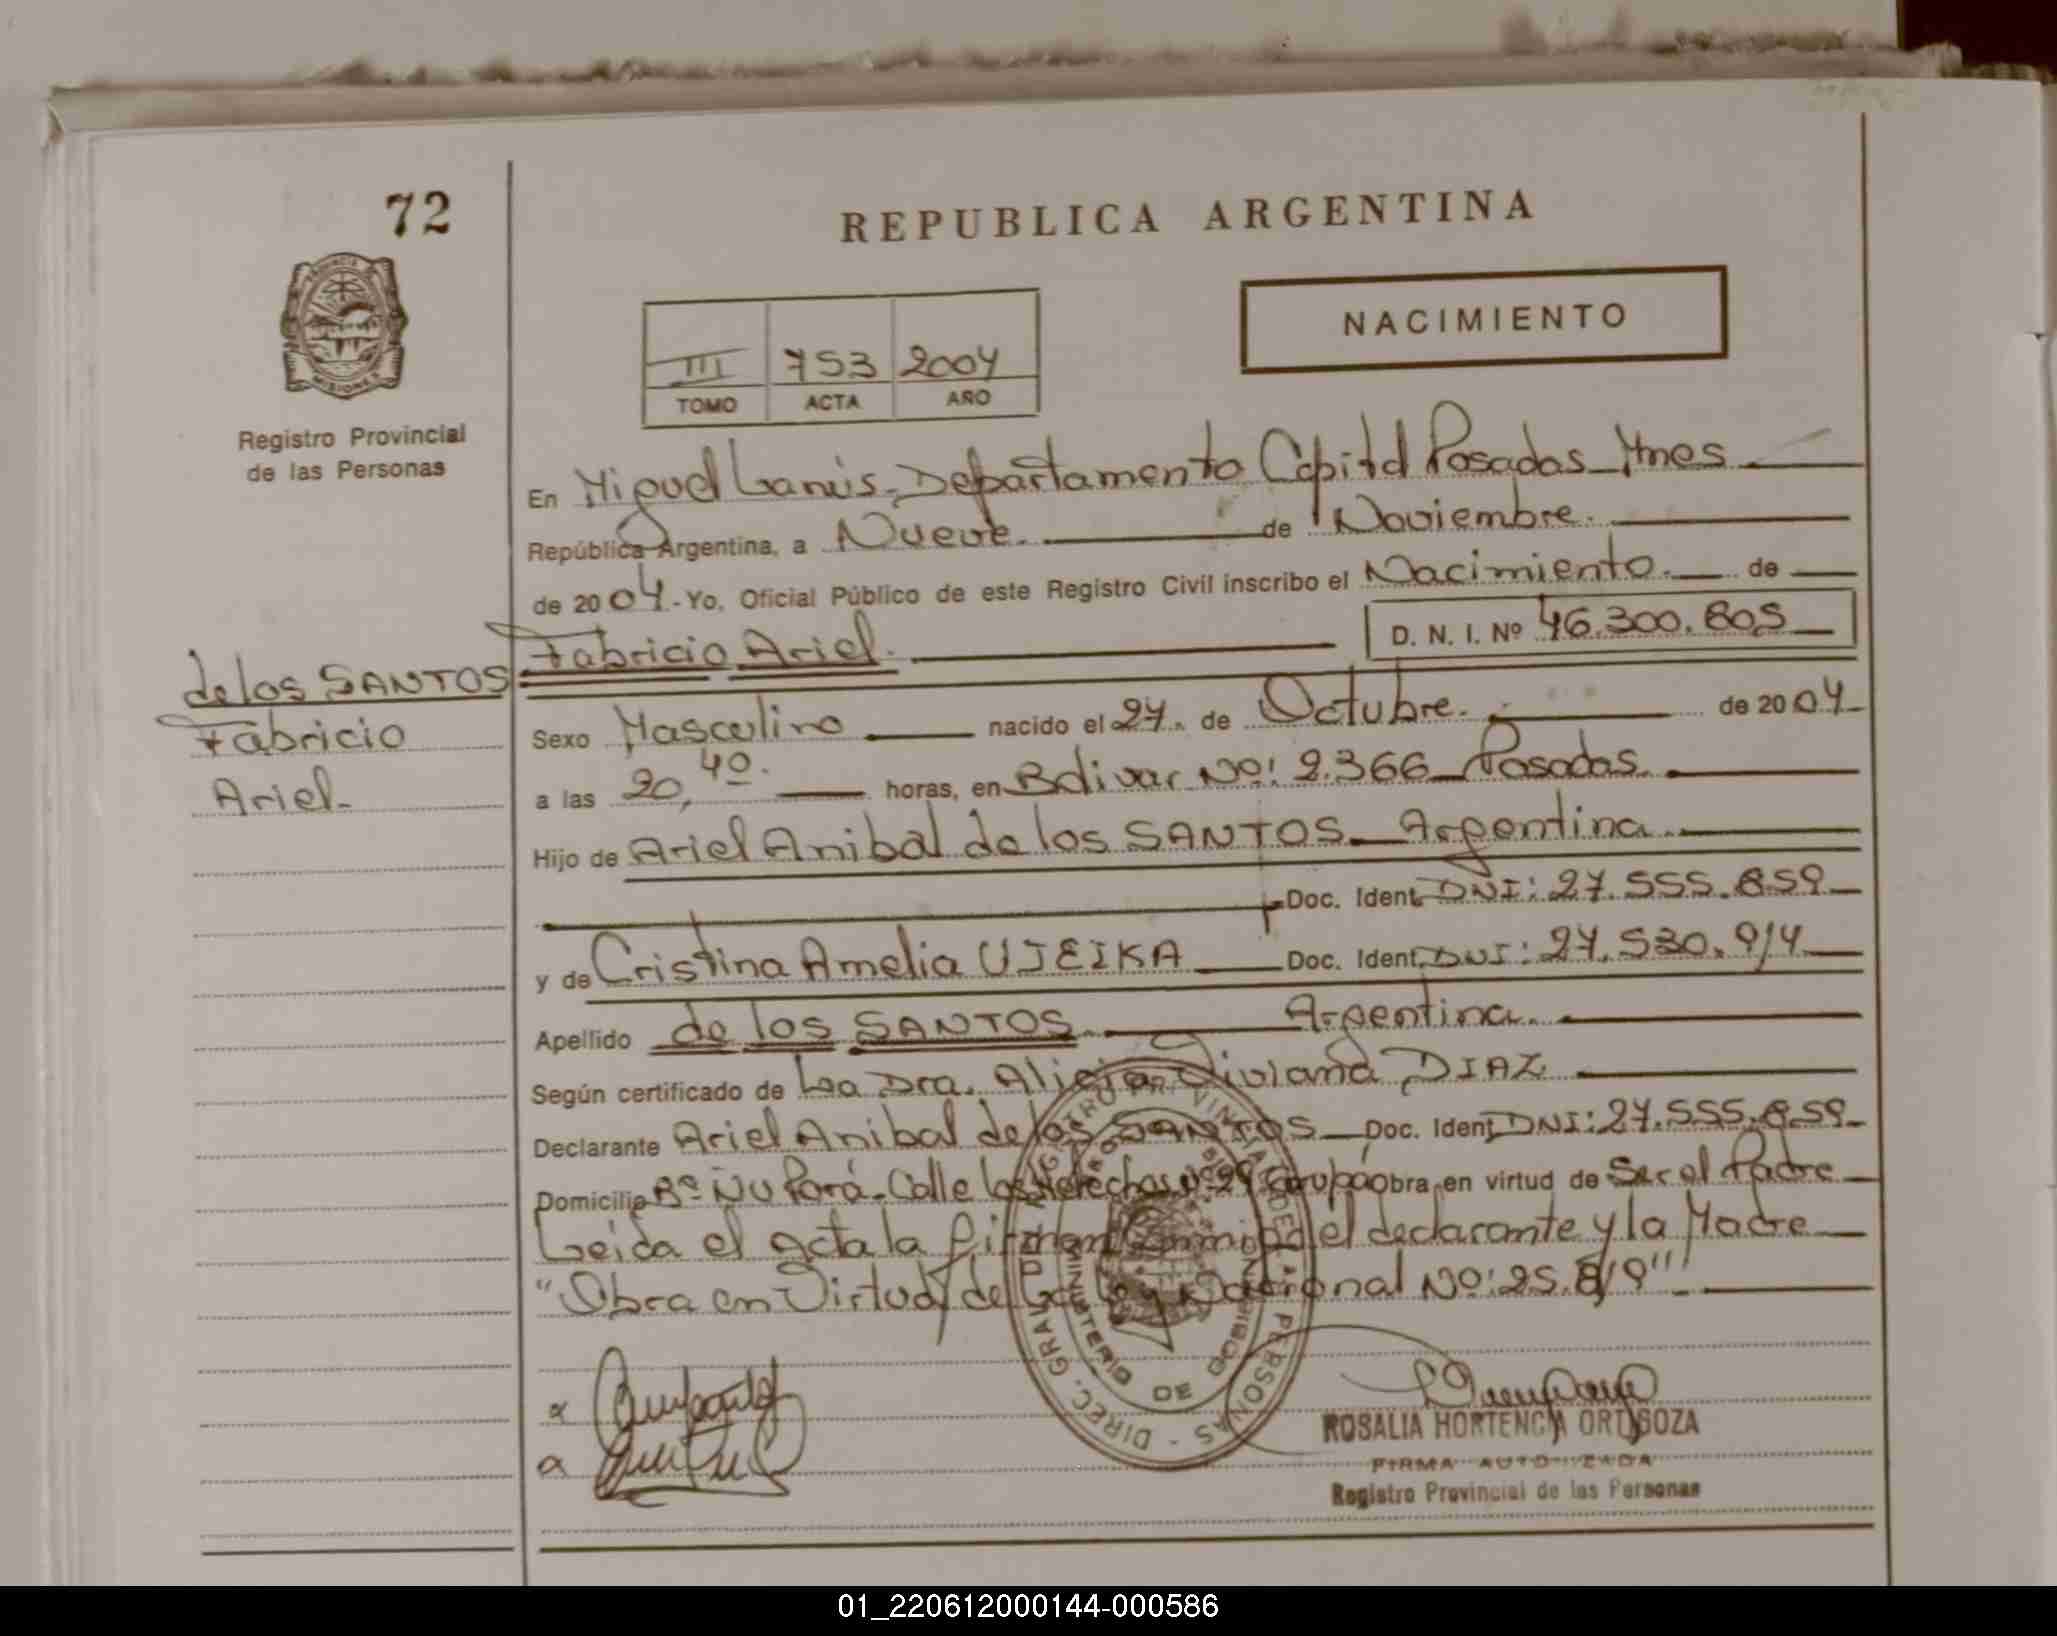 72
REPUBLICA ARGENTINA
NACIMIENTO
III 753 2004
TOMO ACTA AÑO
Registro Provincial
de las Personas
En Miguel Lanús - Departamento Capital Posadas - Mnes
República Argentina, a Nueve. de Noviembre.
de 2004.-Yo, Oficial Público de este Registro Civil inscribo el Nacimiento. de
Fabricio Ariel. D. N. I. Nº 46.300.805
de los SANTOS
Fabricio
Ariel-
Sexo Masculino nacido el 27. de Octubre. de 2004
a las 20,40. horas, en Bolivar Nº: 2.366 - Posadas.
Hijo de Ariel Anibal de los SANTOS - Argentina
Doc. Ident. DNI: 27.555.859
y de Cristina Amelia UJEIKA Doc. Ident. DNI: 27.530.914
Apellido de los SANTOS. Argentina.
Según certificado de La Dra. Alicia Viviana DIAZ
Declarante Ariel Anibal de los SANTOS Doc. Ident. DNI: 27.555.859
Domicilio Bº Ñu Porá - Calle Los Helechos Nº 29 Garupá obra en virtud de Ser el Padre
Leida el acta la firman conmigo el declarante y la Madre
"Obra en Virtud de la Ley Nacional Nº: 25.819"
ROSALIA HORTENCIA ORTIGOZA
FIRMA AUTORIZADA
Registro Provincial de las Personas
DIREC. GRAL. REGISTRO PROVINCIAL DE LAS PERSONAS -
MINISTERIO DE GOBIERNO
MISIONES
01_220612000144-000586